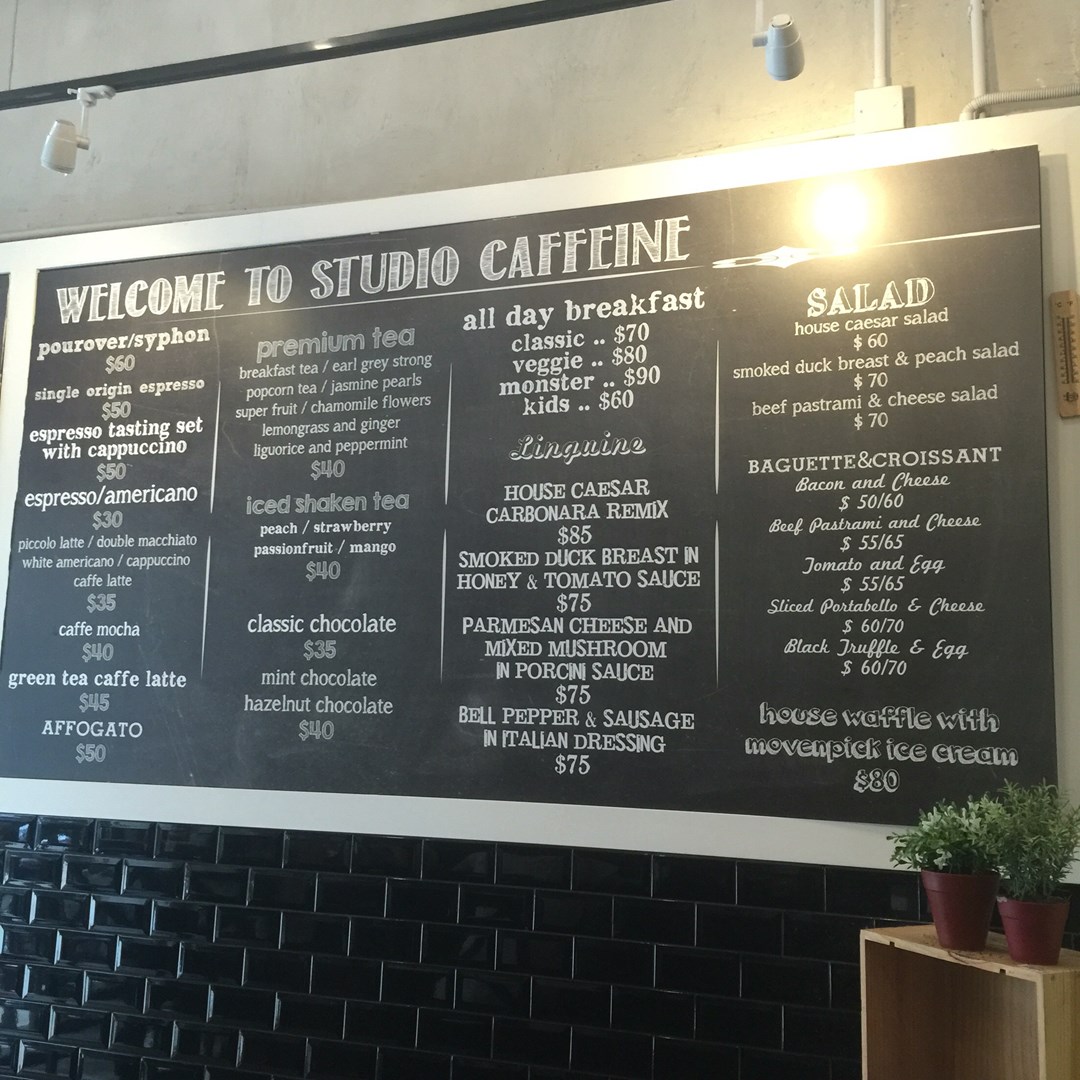 WELCOME TO STUDIO CAFFEINE
pourover/syphon
$60
single origin espresso
$50
espresso tasting set
with cappuccino
$50
espresso/americano
$30
piccolo latte / double macchiato
white americano / cappuccino
caffe latte
$35
caffe mocha
$40
green tea caffe latte
$45
AFFOGATO
$50
premium tea
breakfast tea / earl grey strong
popcorn tea / jasmine pearls
super fruit / chamomile flowers
lemongrass and ginger
liguorice and peppermint
$40
iced shaken tea
peach / strawberry
passionfruit / mango
$40
classic chocolate
$35
mint chocolate
hazelnut chocolate
$40
all day breakfast
classic .. $70
veggie .. $80
monster .. $90
kids .. $60
Linguine
HOUSE CAESAR
CARBONARA REMIX
$85
SMOKED DUCK BREAST IN
HONEY & TOMATO SAUCE
$75
PARMESAN CHEESE AND
MIXED MUSHROOM
IN PORCINI SAUCE
$75
BELL PEPPER & SAUSAGE
IN ITALIAN DRESSING
$75
SALAD
house caesar salad
$ 60
smoked duck breast & peach salad
$ 70
beef pastrami & cheese salad
$ 70
BAGUETTE&CROISSANT
Bacon and Cheese
$ 50/60
Beef Pastrami and Cheese
$ 55/65
Tomato and Egg
$ 55/65
Sliced Portabello & Cheese
$ 60/70
Black Truffle & Egg
$ 60/70
house waffle with
movenpick ice cream
$80